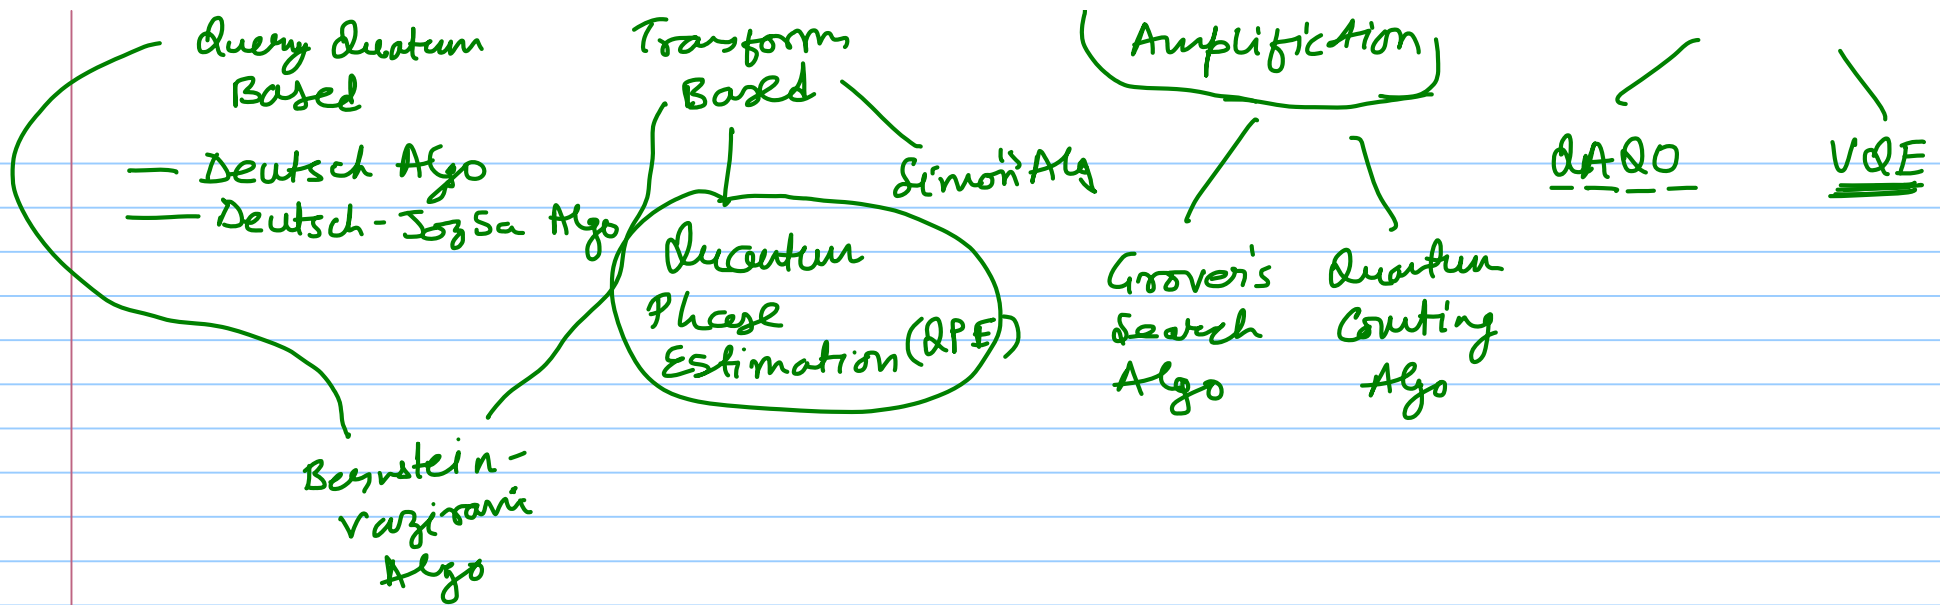 Query Quatum
Based
— Deutsch Algo
— Deutsch-Jozsa Algo
Bernstein-
Vazirani
Algo
Transform
Based
Simon's Alg
Quantum
Phase
Estimation (QPE)
Amplifiction
Grover's
Search
Algo
Quantum
Couting
Algo
QAQO
VQE